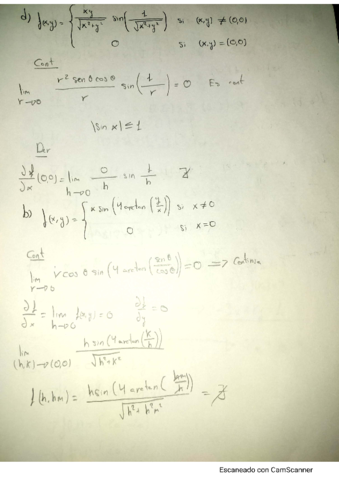 d) f(x,y) = { xy/√(x²+y²) sin(1/√(x²+y²)) si (x,y) ≠ (0,0)
0 si (x,y) = (0,0)
Cont
lim r→0 r² sen θ cos θ / r sin(1/r) = 0 Es cont
|sin x| ≤ 1
Der
∂f/∂x (0,0) = lim h→0 0/h sin 1/h ∄
b) f(x,y) = { x sin(4 arctan(y/x)) si x ≠ 0
0 si x = 0
Cont
lim r→0 r cos θ sin(4 arctan(sin θ/cos θ)) = 0 ⟹ Continua
∂f/∂x = lim h→0 f(x,y) = 0 ∂f/∂y = 0
lim (h,k)→(0,0) h sin(4 arctan(k/h)) / √(h²+k²)
f(h,hm) = h sin(4 arctan(hm/h)) / √(h²+h²m²) = ∄
Escaneado con CamScanner